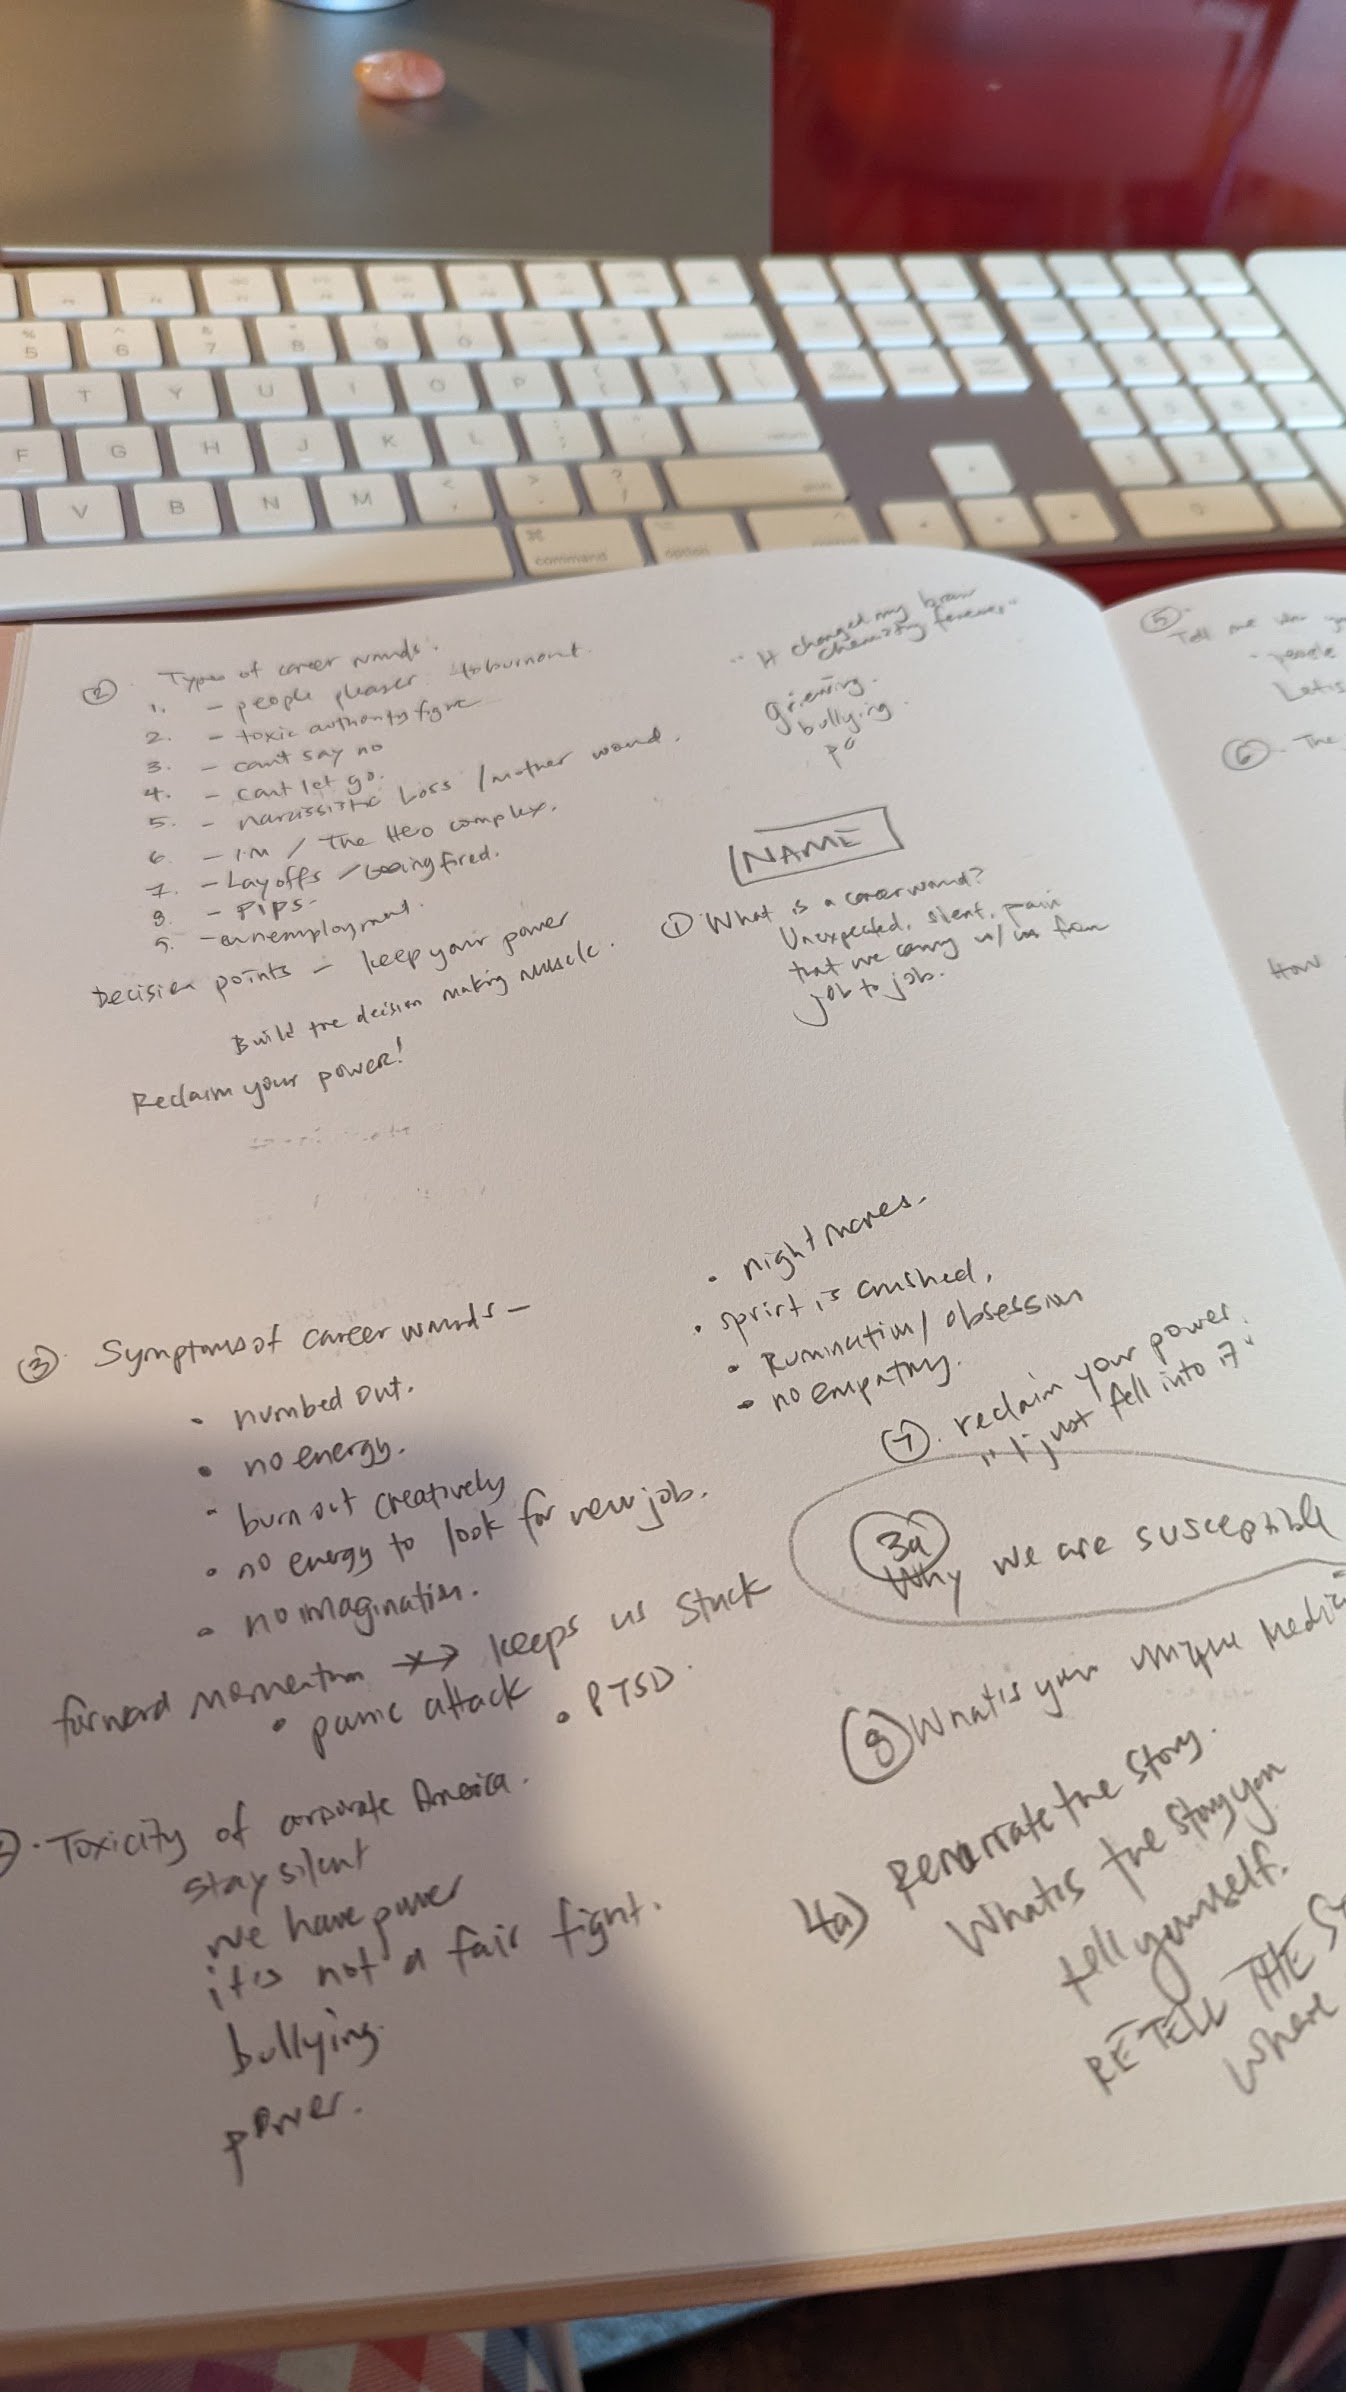 5
6
7
8
9
0
T
Y
U
I
O
P
F
G
H
J
K
L
return
V
B
N
M
command
option
② Types of career wounds.
1. - people pleaser to burnout.
2. - toxic authority figure
3. - can't say no
4. - can't let go.
5. - narcissistic Loss / mother wound.
6. - I'M / The Hero complex.
7. - Layoffs / being fired.
8. - PIPs-
9. - unemployment.
Decision points - keep your power
Build the decision making muscle.
Reclaim your power!
"It changed my brain
chemistry forever"
grieving.
bullying.
po
NAME
① What is a career wound?
Unexpected, silent, pain
that we carry w/ us from
job to job.
③. Symptoms of career wounds -
• numbed out.
• no energy.
• burn out creatively
• no energy to look for new job.
• no imagination.
forward momentum keeps us stuck
• panic attack • PTSD.
• nightmares.
• spirit is crushed,
• Rumination / obsession
• no empathy.
⑦. reclaim your power.
"I just fell into it"
3a
Why we are susceptible
⑧ What is your unique
Toxicity of corporate America.
stay silent
we have power
it's not a fair fight.
bullying.
power.
4a) Renarrate the story.
What is the story you
tell yourself.
RETELL THE
Where
⑤
Tell me
people
⑥. The
How